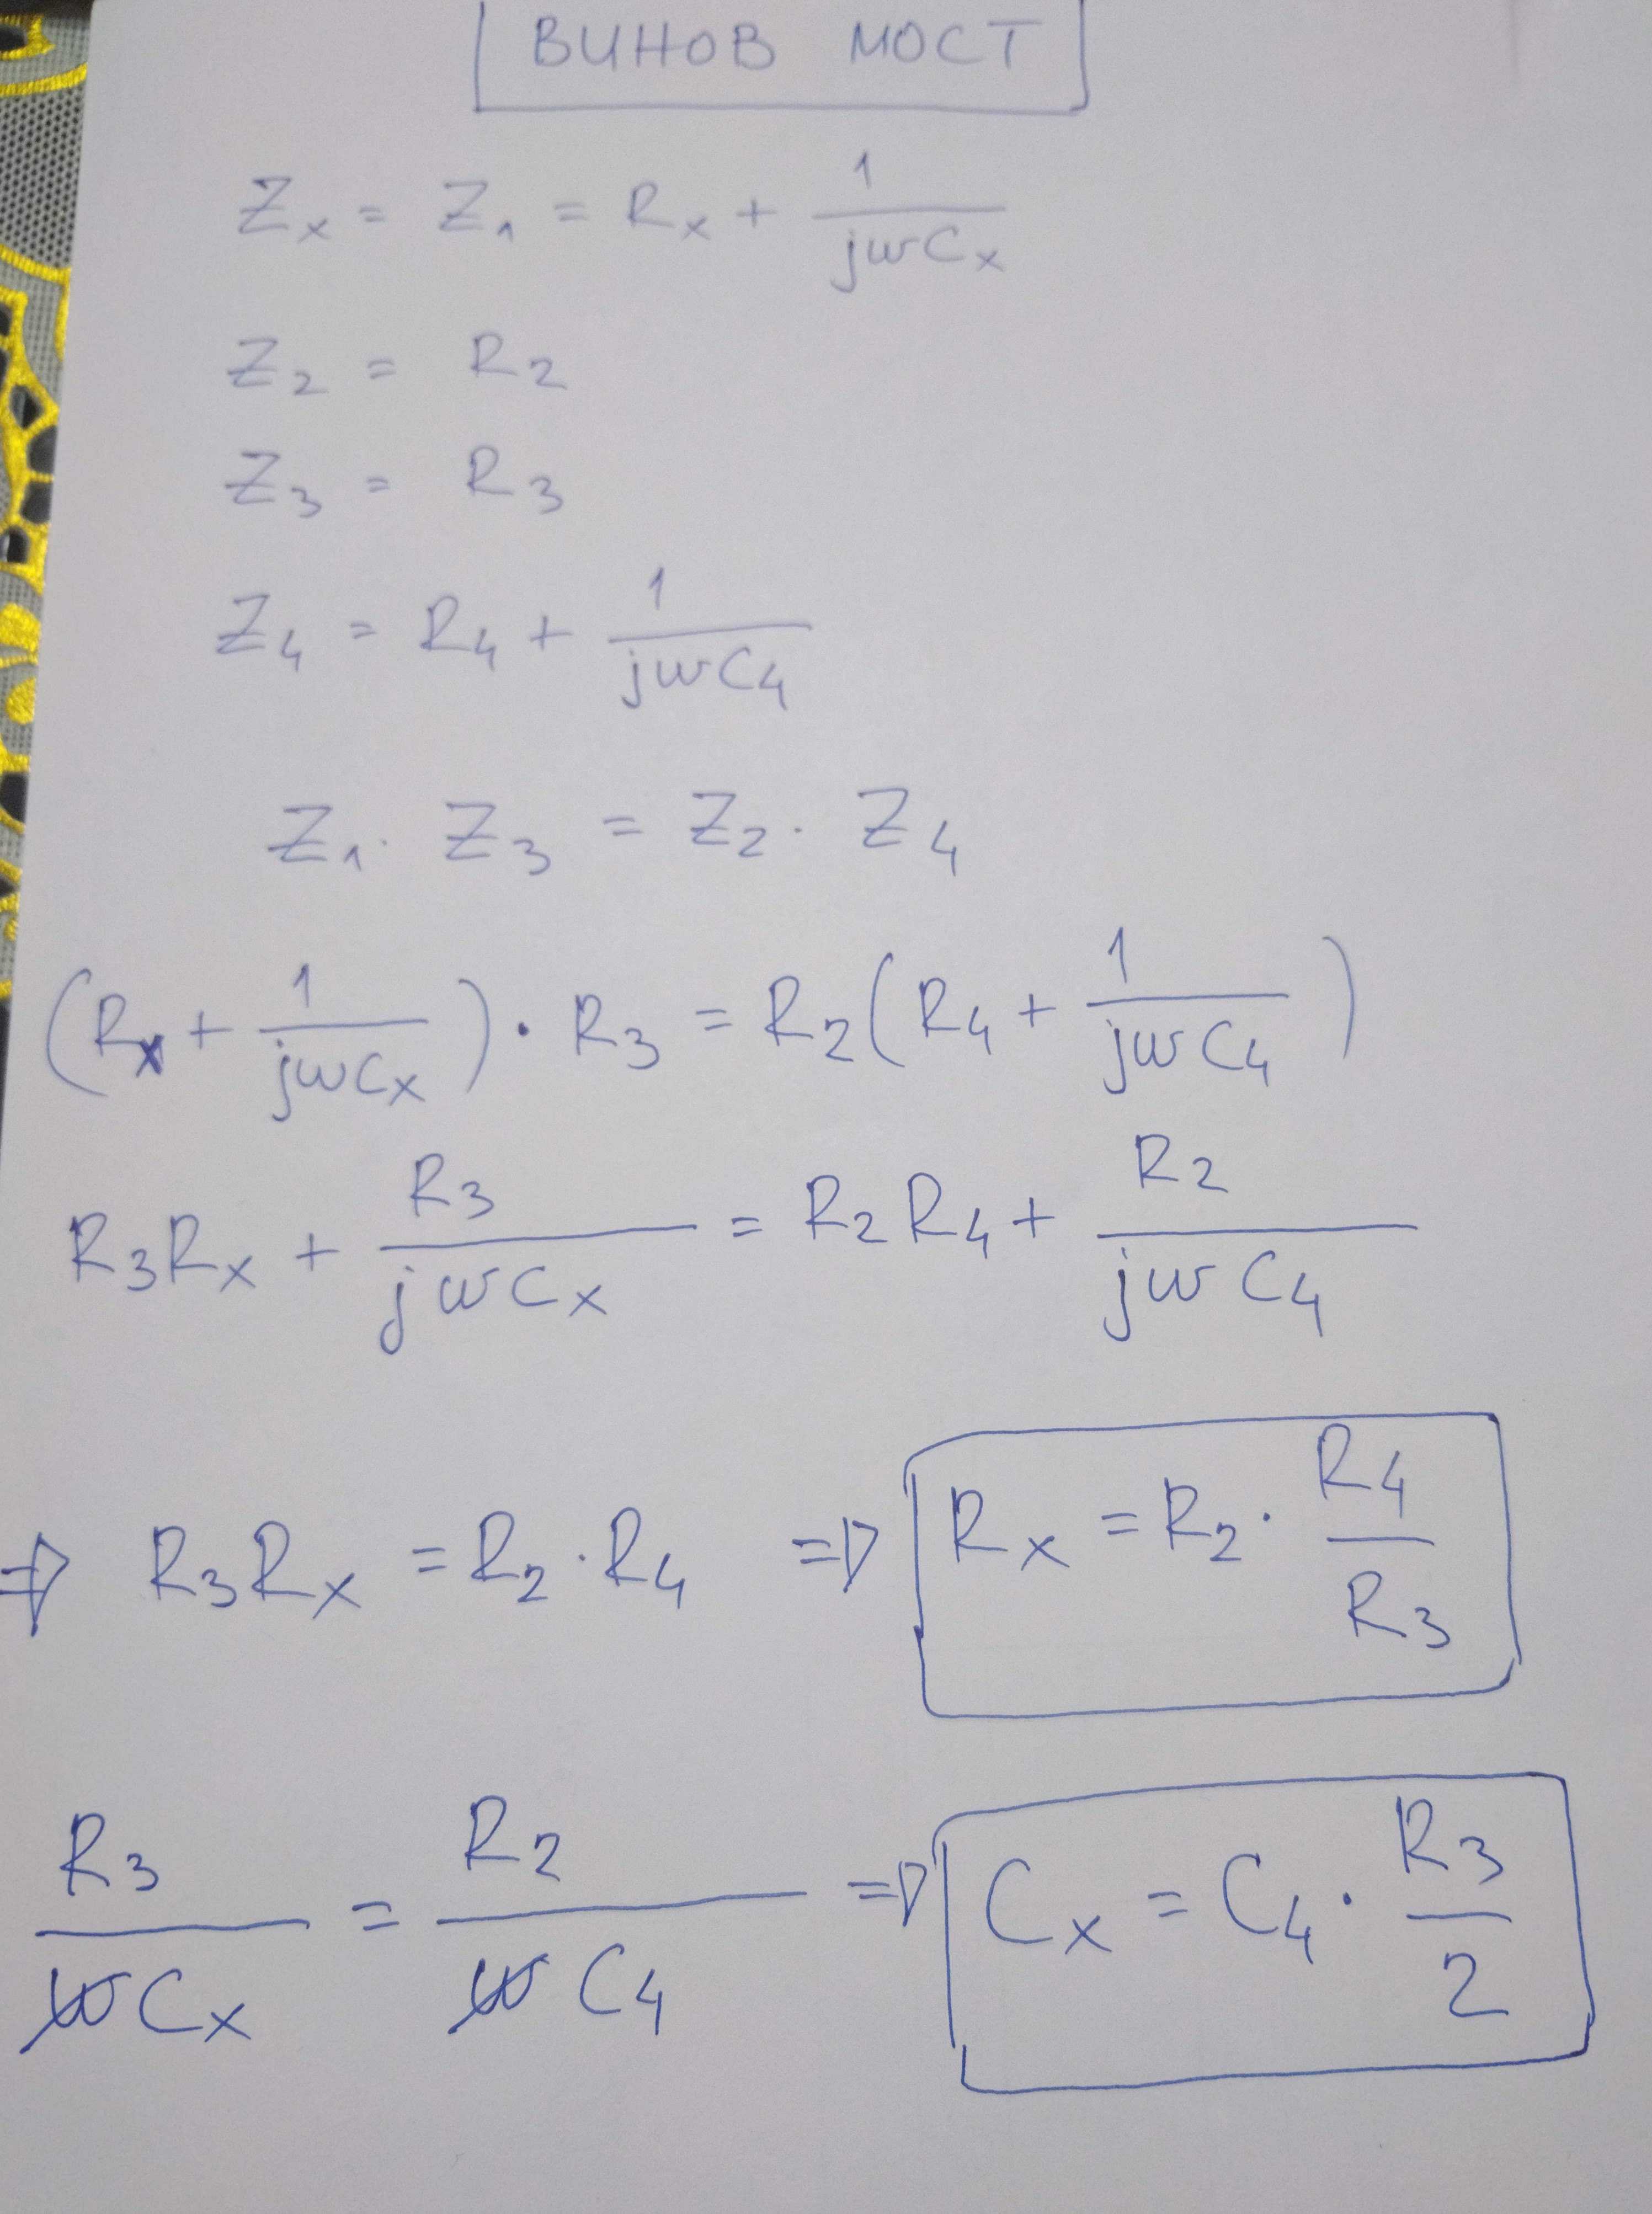 ВИНОВ МОСТ
Zx = Z1 = Rx + 1/(jωCx)
Z2 = R2
Z3 = R3
Z4 = R4 + 1/(jωC4)
Z1 · Z3 = Z2 · Z4
(Rx + 1/(jωCx)) · R3 = R2(R4 + 1/(jωC4))
R3Rx + R3/(jωCx) = R2R4 + R2/(jωC4)
⇒ R3Rx = R2 · R4 ⇒ Rx = R2 · R4/R3
R3/(ωCx) = R2/(ωC4) ⇒ Cx = C4 · R3/2